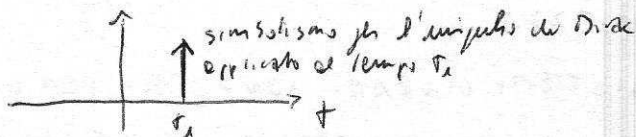 simbolismo per l'impulso di Dirac
applicato al tempo t₁
t₁ t